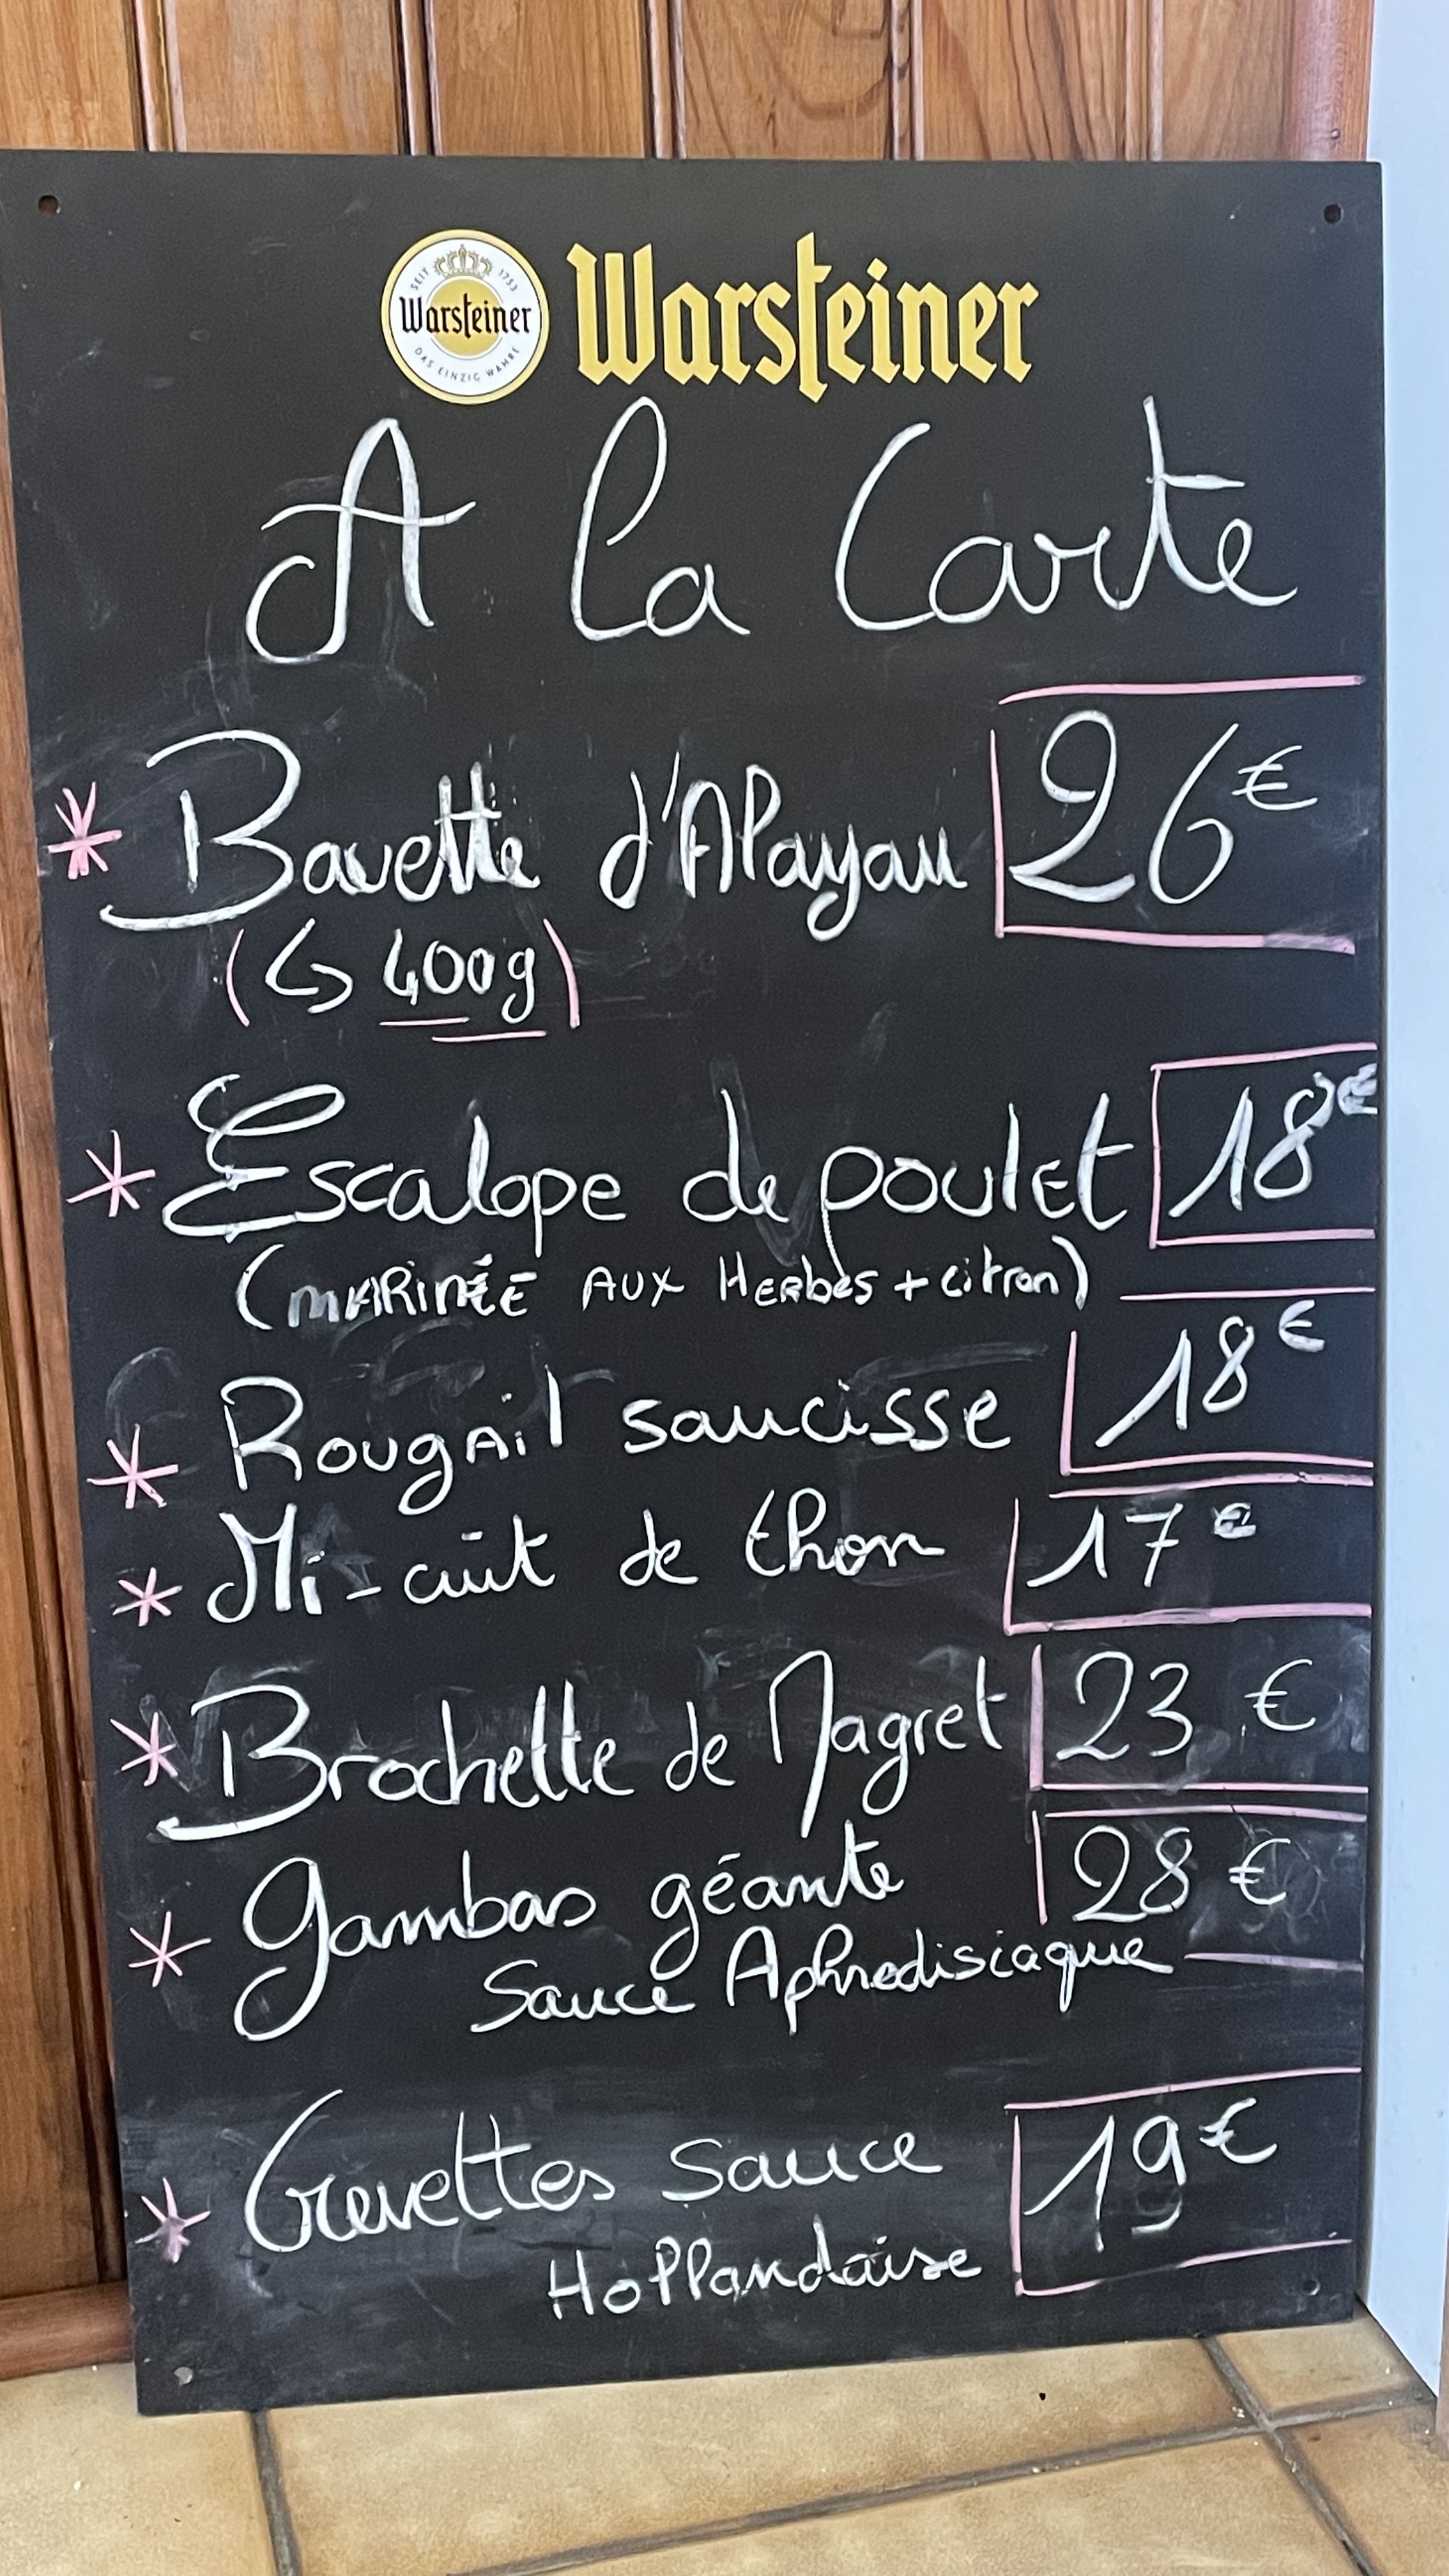 SEIT 1753
Warsteiner
DAS EINZIG WAHRE
Warsteiner
A la Carte
* Bavette d'Aloyau 26€
(↳ 400g)
* Escalope de poulet 18€
(MARINÉE AUX HERbes + citron)
* Rougail saucisse 18€
* Mi-cuit de thon 17€
* Brochette de Magret 23 €
* Gambas géante 28 €
Sauce Aphrodisiaque
* Crevettes Sauce 19€
Hollandaise